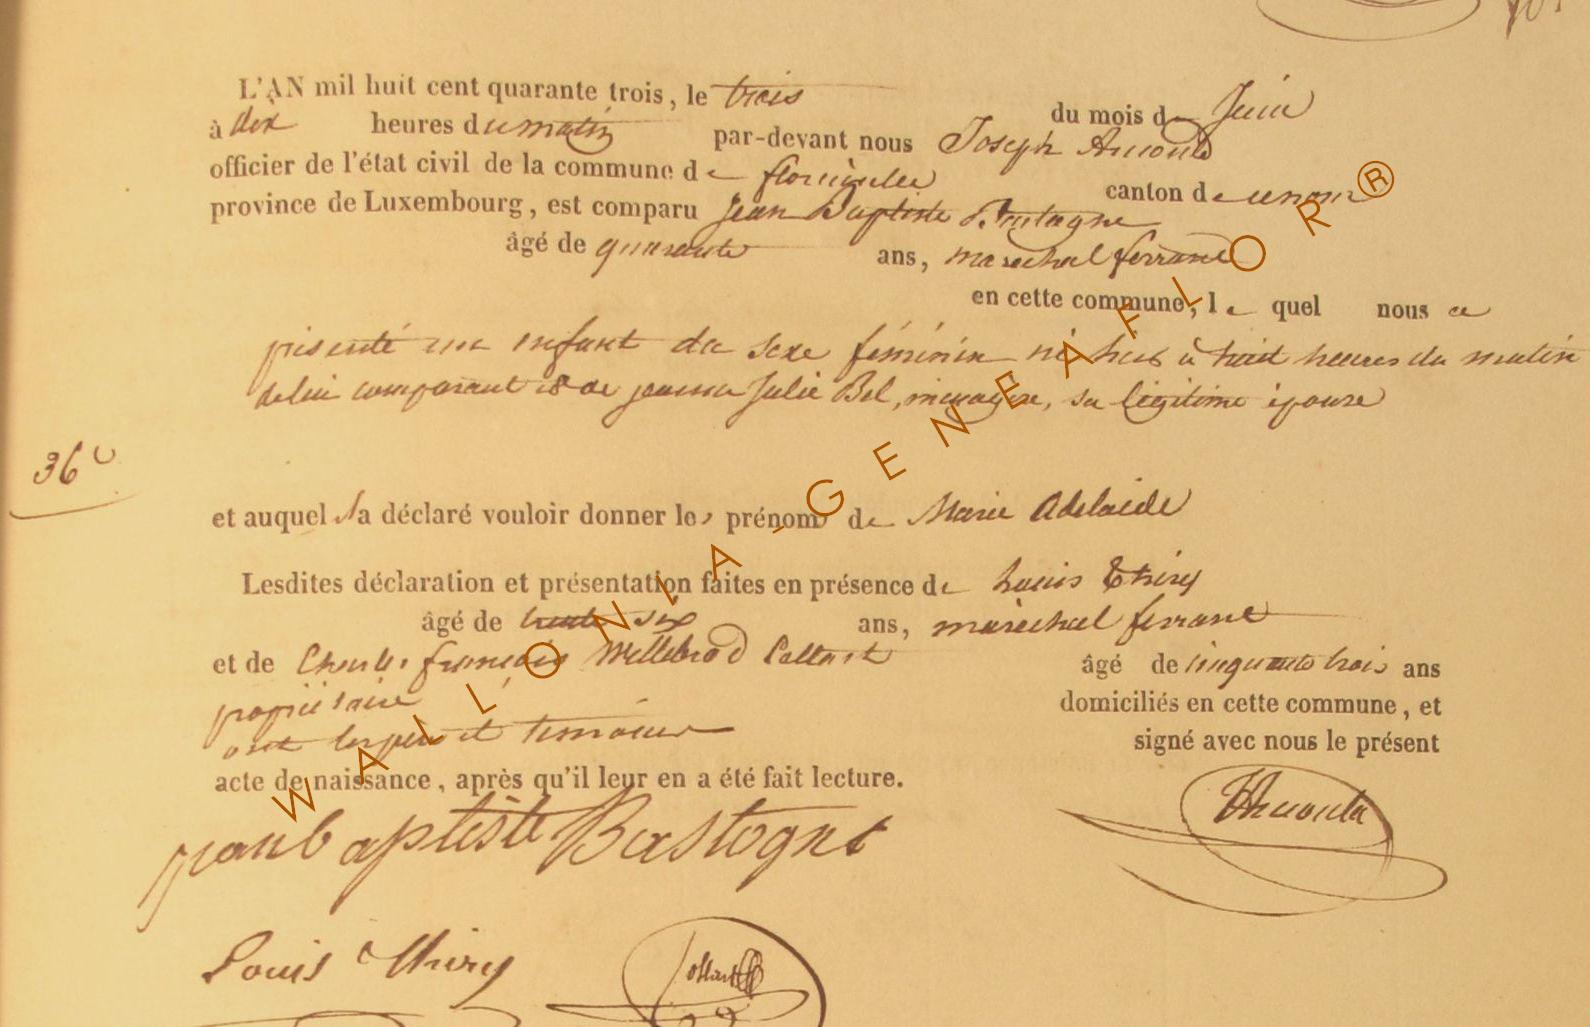 L'AN mil huit cent quarante trois, le trois du mois de Juin
à dix heures du matin par-devant nous Joseph Arnould
officier de l'état civil de la commune de florenville canton de
province de Luxembourg, est comparu Jean Baptiste Bastogne
âgé de quarante ans, maréchal ferrant
en cette commune, le quel nous a
présenté un enfant du sexe féminin né hier à huit heures du matin
de lui comparant et de jeanne Julie Bel, ménagère, sa légitime épouse
36e
et auquel il a déclaré vouloir donner les prénoms de Marie Adelaide
Lesdites déclaration et présentation faites en présence de Louis Thiry
âgé de trente six ans, maréchal ferrant
et de Charles françois Willebrod Collart âgé de cinquante trois ans
propriétaire domiciliés en cette commune, et
ont les père et témoins signé avec nous le présent
acte de naissance, après qu'il leur en a été fait lecture.
jean baptiste Bastogne
Louis Thiry
WALLONIA-GENEAFLOR®